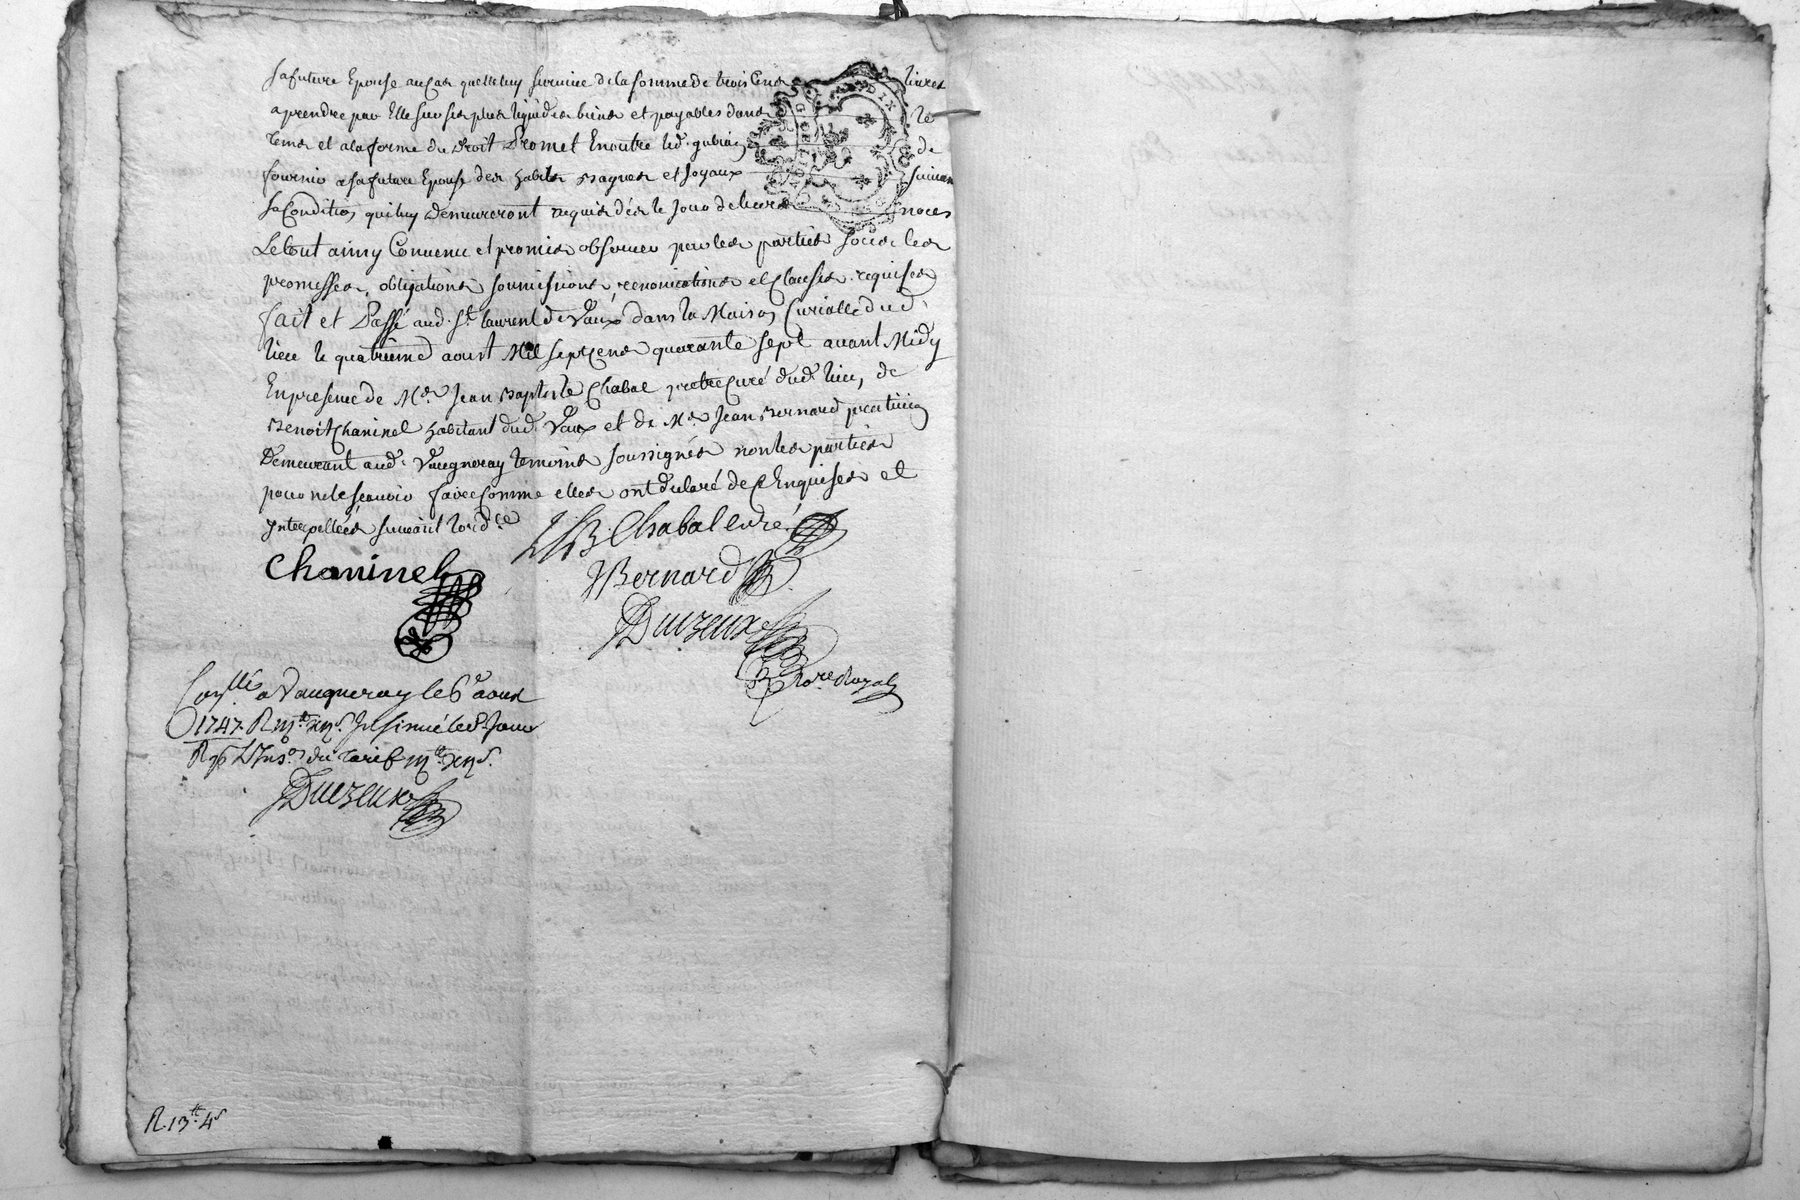 sa future Epouse au Cas quelle luy Survive de la somme de trois Cens livres
a prendre par Elle sur ses plus liquides biens et payables dans le
tems et a la forme du Droit Promet En outre led. de
fournir a sa future Epouse des habits Bagues et Joyaux suivan
sa Condition qui luy Demeureront acquis dès le Jour de leurs noces
Le tout ainsy Convenu et promis observer par les parties sous les
promesses, obligations soumissions, renonciations et Clauses requises
fait et Passé aud. St. laurent de Vaux dans la Maison Curialle dud.
lieu le quatrieme aoust Mil sept Cens quarante sept avant Midy
En presence de Mr. Jean Baptiste Chabal pretre Curé dud. lieu, de
Benoit Chaninel habitant dud. Vaux et de Me. Jean Bernard praticien
Demeurant aud. Vaugneray temoins soussignés non les parties
pour ne le scavoir faire comme elles ont declaré de ce Enquises et
Interpellées suivant l'ord.ce
JB Chabal curé
Chaninel
JBernard
Duizeux
No.re Royal
Con.llé a Vaugneray le 6e aoust
1747. R Insinué led. Jour
du tarif
Duizeux
R. 13tt 4s
GEN DIX